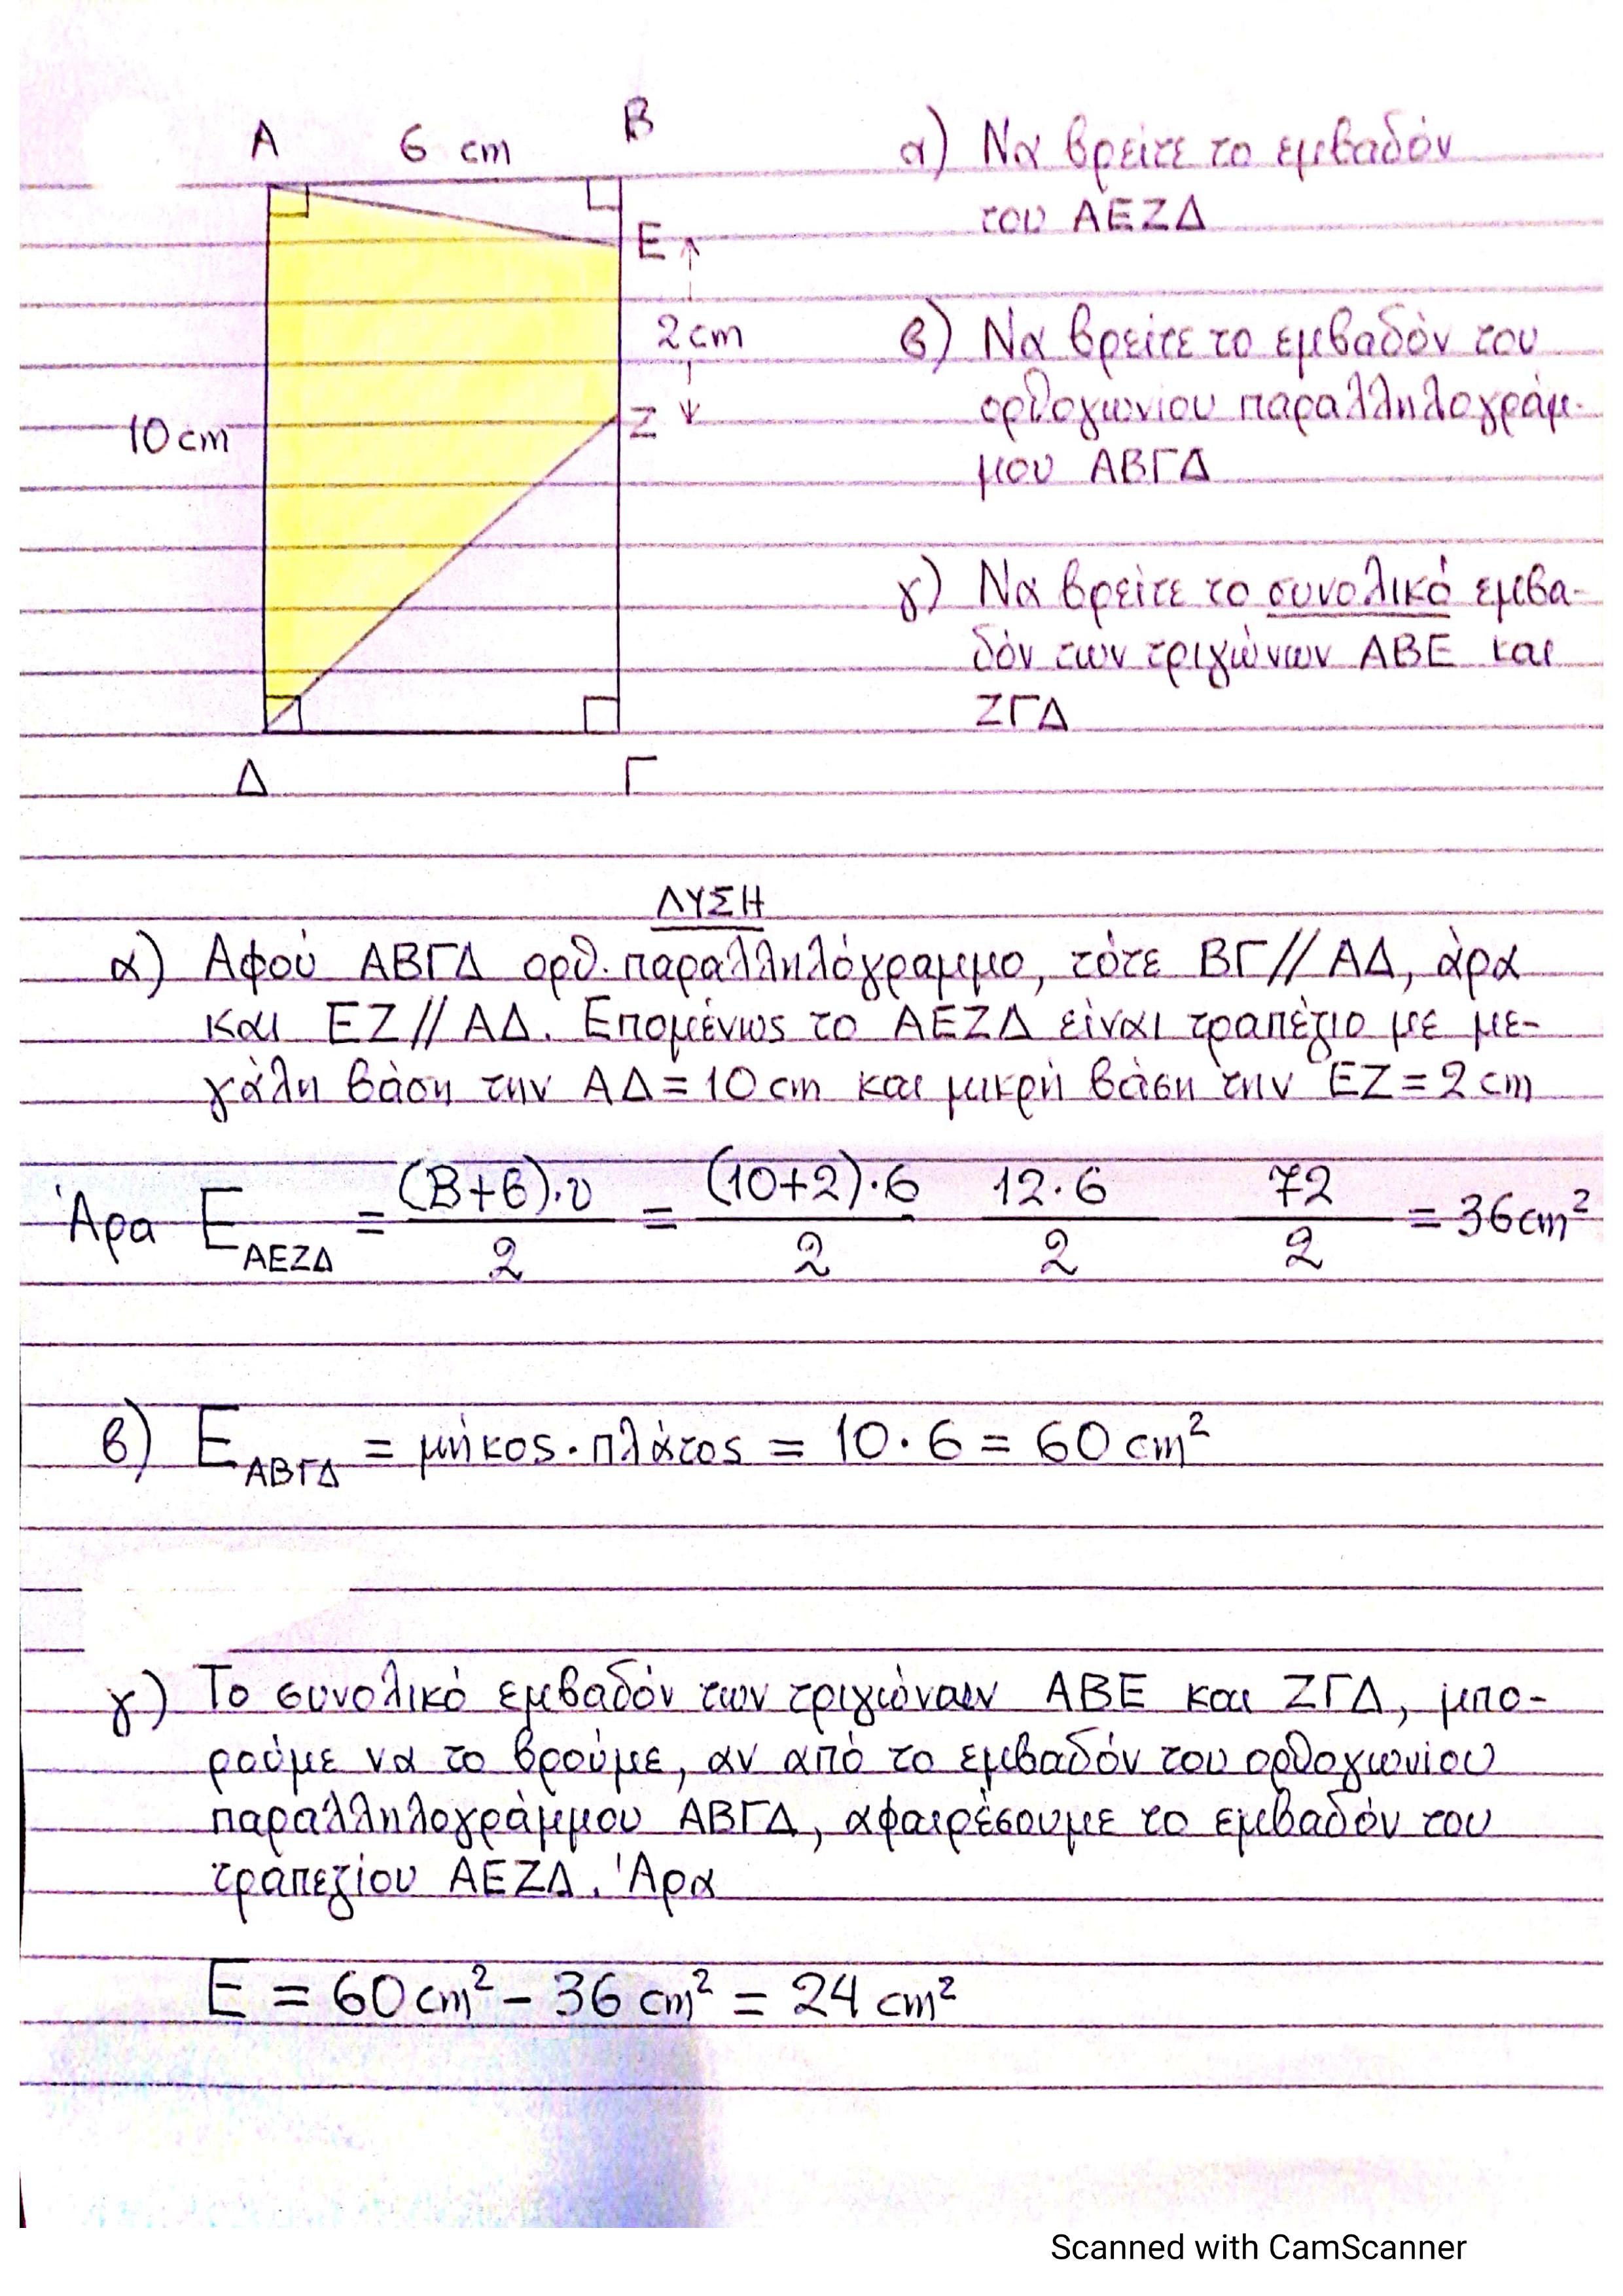 A 6 cm B
E
2 cm
Z
10 cm
Δ Γ
α) Να βρείτε το εμβαδόν
του ΑΕΖΔ
β) Να βρείτε το εμβαδόν του
ορθογωνίου παραλληλογράμ-
μου ΑΒΓΔ
γ) Να βρείτε το συνολικό εμβα-
δόν των τριγώνων ΑΒΕ και
ΖΓΔ
ΛΥΣΗ
α) Αφού ΑΒΓΔ ορθ. παραλληλόγραμμο, τότε ΒΓ//ΑΔ, άρα
και ΕΖ//ΑΔ. Επομένως το ΑΕΖΔ είναι τραπέζιο με με-
γάλη βάση την ΑΔ=10 cm και μικρή βάση την ΕΖ=2 cm
Άρα Ε_ΑΕΖΔ = (Β+β)·υ/2 = (10+2)·6/2 12·6/2 72/2 = 36 cm²
β) Ε_ΑΒΓΔ = μήκος·πλάτος = 10·6 = 60 cm²
γ) Το συνολικό εμβαδόν των τριγώνων ΑΒΕ και ΖΓΔ, μπο-
ρούμε να το βρούμε, αν από το εμβαδόν του ορθογωνίου
παραλληλογράμμου ΑΒΓΔ, αφαιρέσουμε το εμβαδόν του
τραπεζίου ΑΕΖΔ. Άρα
Ε = 60 cm² - 36 cm² = 24 cm²
Scanned with CamScanner